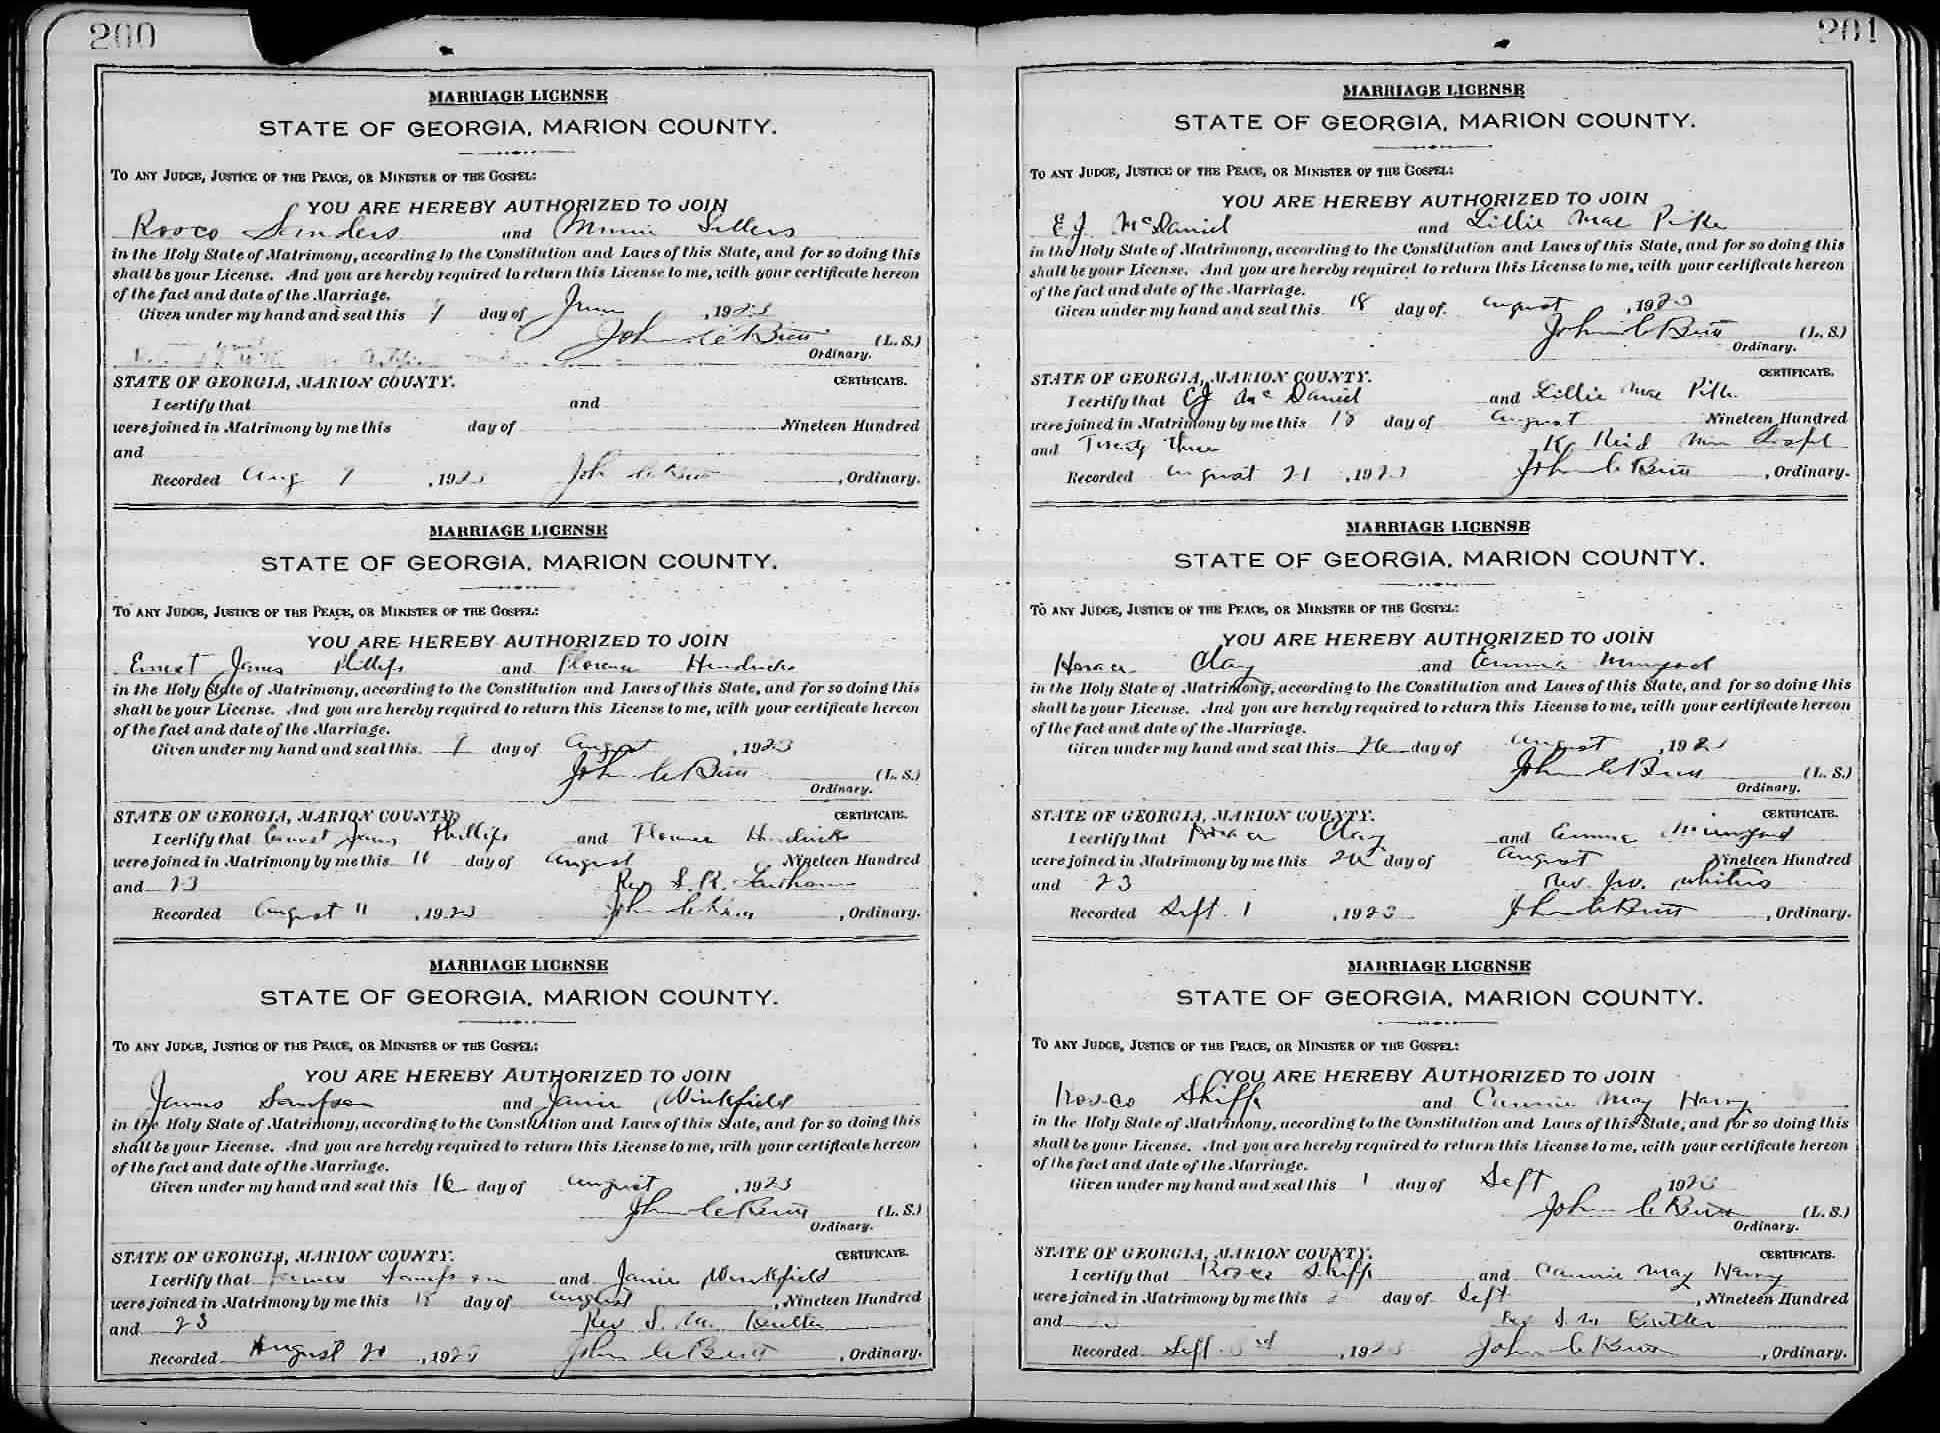 200
MARRIAGE LICENSE
STATE OF GEORGIA, MARION COUNTY.
TO ANY JUDGE, JUSTICE OF THE PEACE, OR MINISTER OF THE GOSPEL:
YOU ARE HEREBY AUTHORIZED TO JOIN
Rosco Sanders and Minnie Sellers
in the Holy State of Matrimony, according to the Constitution and Laws of this State, and for so doing this
shall be your License. And you are hereby required to return this License to me, with your certificate hereon
of the fact and date of the Marriage.
Given under my hand and seal this 9 day of June, 1923
John C Butt (L. S.)
Ordinary.
STATE OF GEORGIA, MARION COUNTY. CERTIFICATE.
I certify that and
were joined in Matrimony by me this day of Nineteen Hundred
and
Recorded Aug 9, 1923 John C Butt, Ordinary.
MARRIAGE LICENSE
STATE OF GEORGIA, MARION COUNTY.
TO ANY JUDGE, JUSTICE OF THE PEACE, OR MINISTER OF THE GOSPEL:
YOU ARE HEREBY AUTHORIZED TO JOIN
Ernest James Phillips and Florence Hendricks
in the Holy State of Matrimony, according to the Constitution and Laws of this State, and for so doing this
shall be your License. And you are hereby required to return this License to me, with your certificate hereon
of the fact and date of the Marriage.
Given under my hand and seal this 9 day of August, 1923
John C Butt (L. S.)
Ordinary.
STATE OF GEORGIA, MARION COUNTY. CERTIFICATE.
I certify that Ernest James Phillips and Florence Hendricks
were joined in Matrimony by me this 11 day of August Nineteen Hundred
and 23 Rev S. R.
Recorded August 11, 1923 John C Butt, Ordinary.
MARRIAGE LICENSE
STATE OF GEORGIA, MARION COUNTY.
TO ANY JUDGE, JUSTICE OF THE PEACE, OR MINISTER OF THE GOSPEL:
YOU ARE HEREBY AUTHORIZED TO JOIN
James Sampson and Janie Winkfield
in the Holy State of Matrimony, according to the Constitution and Laws of this State, and for so doing this
shall be your License. And you are hereby required to return this License to me, with your certificate hereon
of the fact and date of the Marriage.
Given under my hand and seal this 16 day of August, 1923
John C Butt (L. S.)
Ordinary.
STATE OF GEORGIA, MARION COUNTY. CERTIFICATE.
I certify that James Sampson and Janie Winkfield
were joined in Matrimony by me this 18 day of August, Nineteen Hundred
and 23 Rev S. M. Butler
Recorded August 20, 1923 John C Butt, Ordinary.
201
MARRIAGE LICENSE
STATE OF GEORGIA, MARION COUNTY.
TO ANY JUDGE, JUSTICE OF THE PEACE, OR MINISTER OF THE GOSPEL:
YOU ARE HEREBY AUTHORIZED TO JOIN
E J. McDaniel and Lillie Mae Pike
in the Holy State of Matrimony, according to the Constitution and Laws of this State, and for so doing this
shall be your License. And you are hereby required to return this License to me, with your certificate hereon
of the fact and date of the Marriage.
Given under my hand and seal this 18 day of August, 1923
John C Butt (L. S.)
Ordinary.
STATE OF GEORGIA, MARION COUNTY. CERTIFICATE.
I certify that E J McDaniel and Lillie Mae Pike
were joined in Matrimony by me this 18 day of August Nineteen Hundred
and Twenty three Reid Min Gospel
Recorded August 21, 1923 John C Butt, Ordinary.
MARRIAGE LICENSE
STATE OF GEORGIA, MARION COUNTY.
TO ANY JUDGE, JUSTICE OF THE PEACE, OR MINISTER OF THE GOSPEL:
YOU ARE HEREBY AUTHORIZED TO JOIN
Horace Clay and Emma
in the Holy State of Matrimony, according to the Constitution and Laws of this State, and for so doing this
shall be your License. And you are hereby required to return this License to me, with your certificate hereon
of the fact and date of the Marriage.
Given under my hand and seal this 26 day of August, 1923
John C Butt (L. S.)
Ordinary.
STATE OF GEORGIA, MARION COUNTY. CERTIFICATE.
I certify that Horace Clay and Emma
were joined in Matrimony by me this 26 day of August Nineteen Hundred
and 23 Rev. Whitus
Recorded Sept. 1, 1923 John C Butt, Ordinary.
MARRIAGE LICENSE
STATE OF GEORGIA, MARION COUNTY.
TO ANY JUDGE, JUSTICE OF THE PEACE, OR MINISTER OF THE GOSPEL:
YOU ARE HEREBY AUTHORIZED TO JOIN
Rosco Shipp and Cannie May Harvy
in the Holy State of Matrimony, according to the Constitution and Laws of this State, and for so doing this
shall be your License. And you are hereby required to return this License to me, with your certificate hereon
of the fact and date of the Marriage.
Given under my hand and seal this 1 day of Sept, 1923
John C Butt (L. S.)
Ordinary.
STATE OF GEORGIA, MARION COUNTY. CERTIFICATE.
I certify that Rosco Shipp and Cannie May Harvy
were joined in Matrimony by me this 2 day of Sept, Nineteen Hundred
and 23 Rev S. M Butler
Recorded Sept. 3rd, 1923 John C Butt, Ordinary.